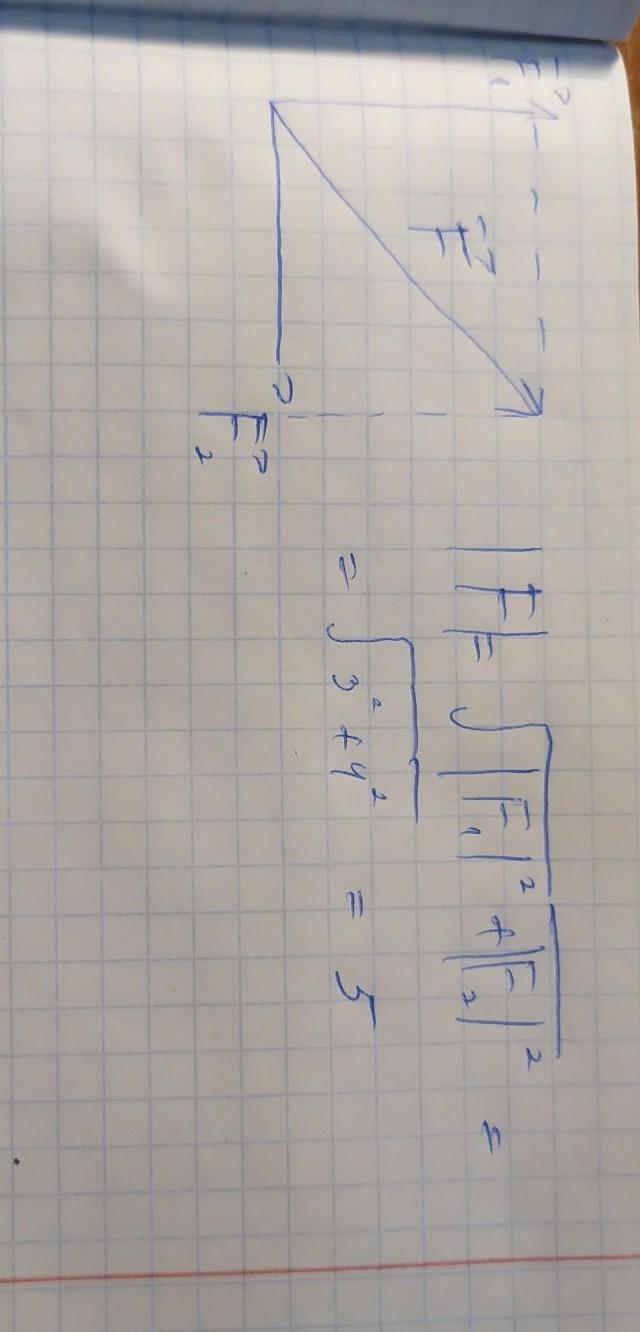 F⃗₁
F⃗
F⃗₂
|F| = √|F₁|² + |F₂|² =
= √3² + 4² = 5